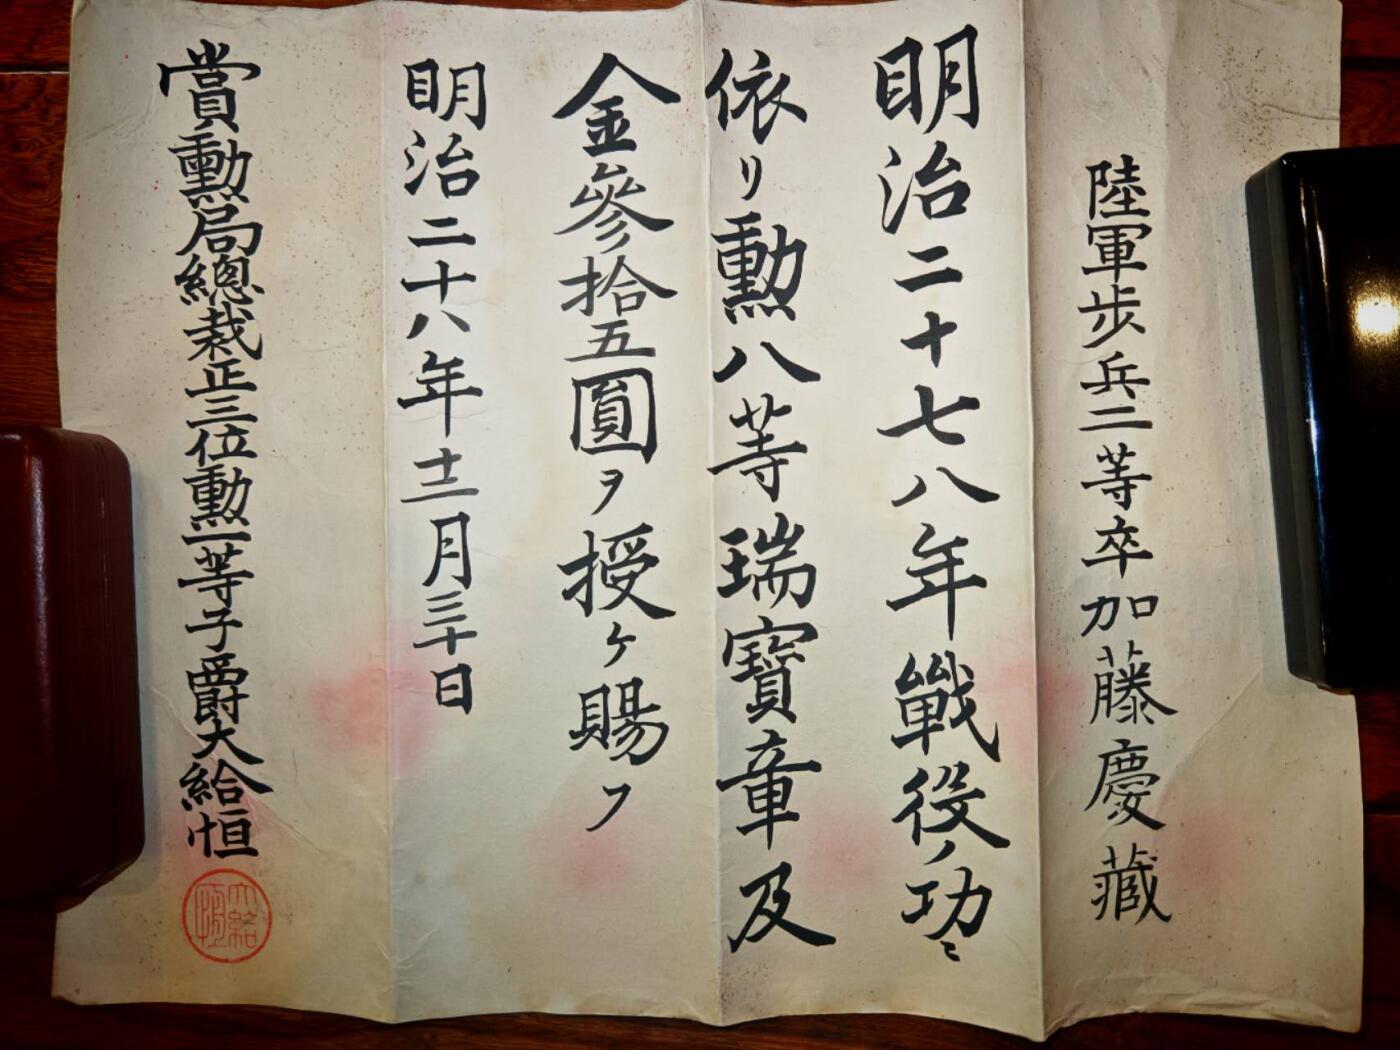 陸軍歩兵二等卒加藤慶藏
明治二十七八年戰役ノ功ニ
依リ勲八等瑞寶章及
金參拾五圓ヲ授ケ賜フ
明治二十八年十二月三十日
賞勲局總裁正三位勲一等子爵大給恒
大給恒